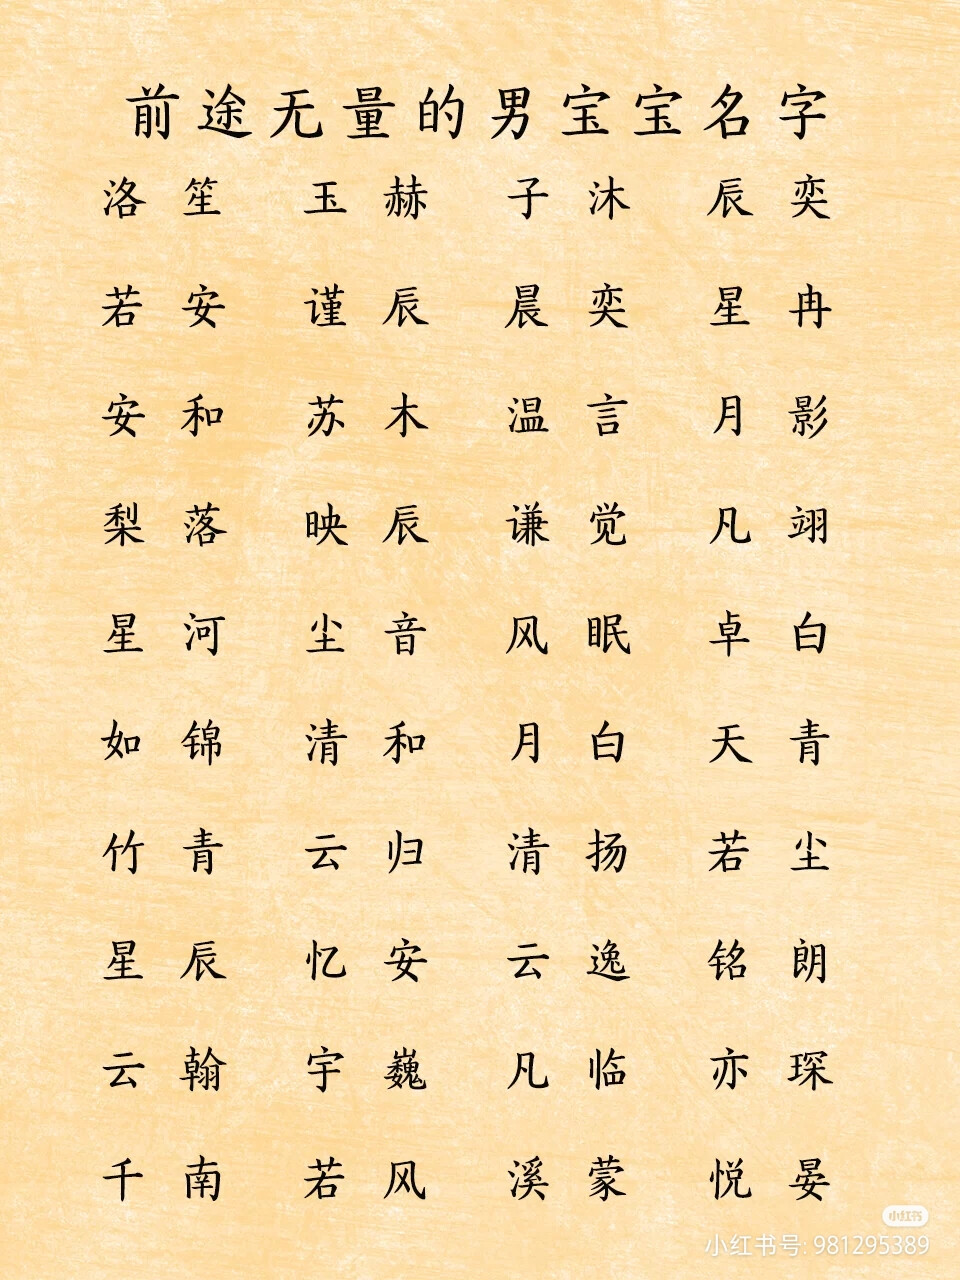 前途无量的男宝宝名字
洛笙 玉赫 子沐 辰奕
若安 谨辰 晨奕 星冉
安和 苏木 温言 月影
梨落 映辰 谦觉 凡翊
星河 尘音 风眠 卓白
如锦 清和 月白 天青
竹青 云归 清扬 若尘
星辰 忆安 云逸 铭朗
云翰 宇巍 凡临 亦琛
千南 若风 溪蒙 悦晏
小红书
小红书号: 981295389